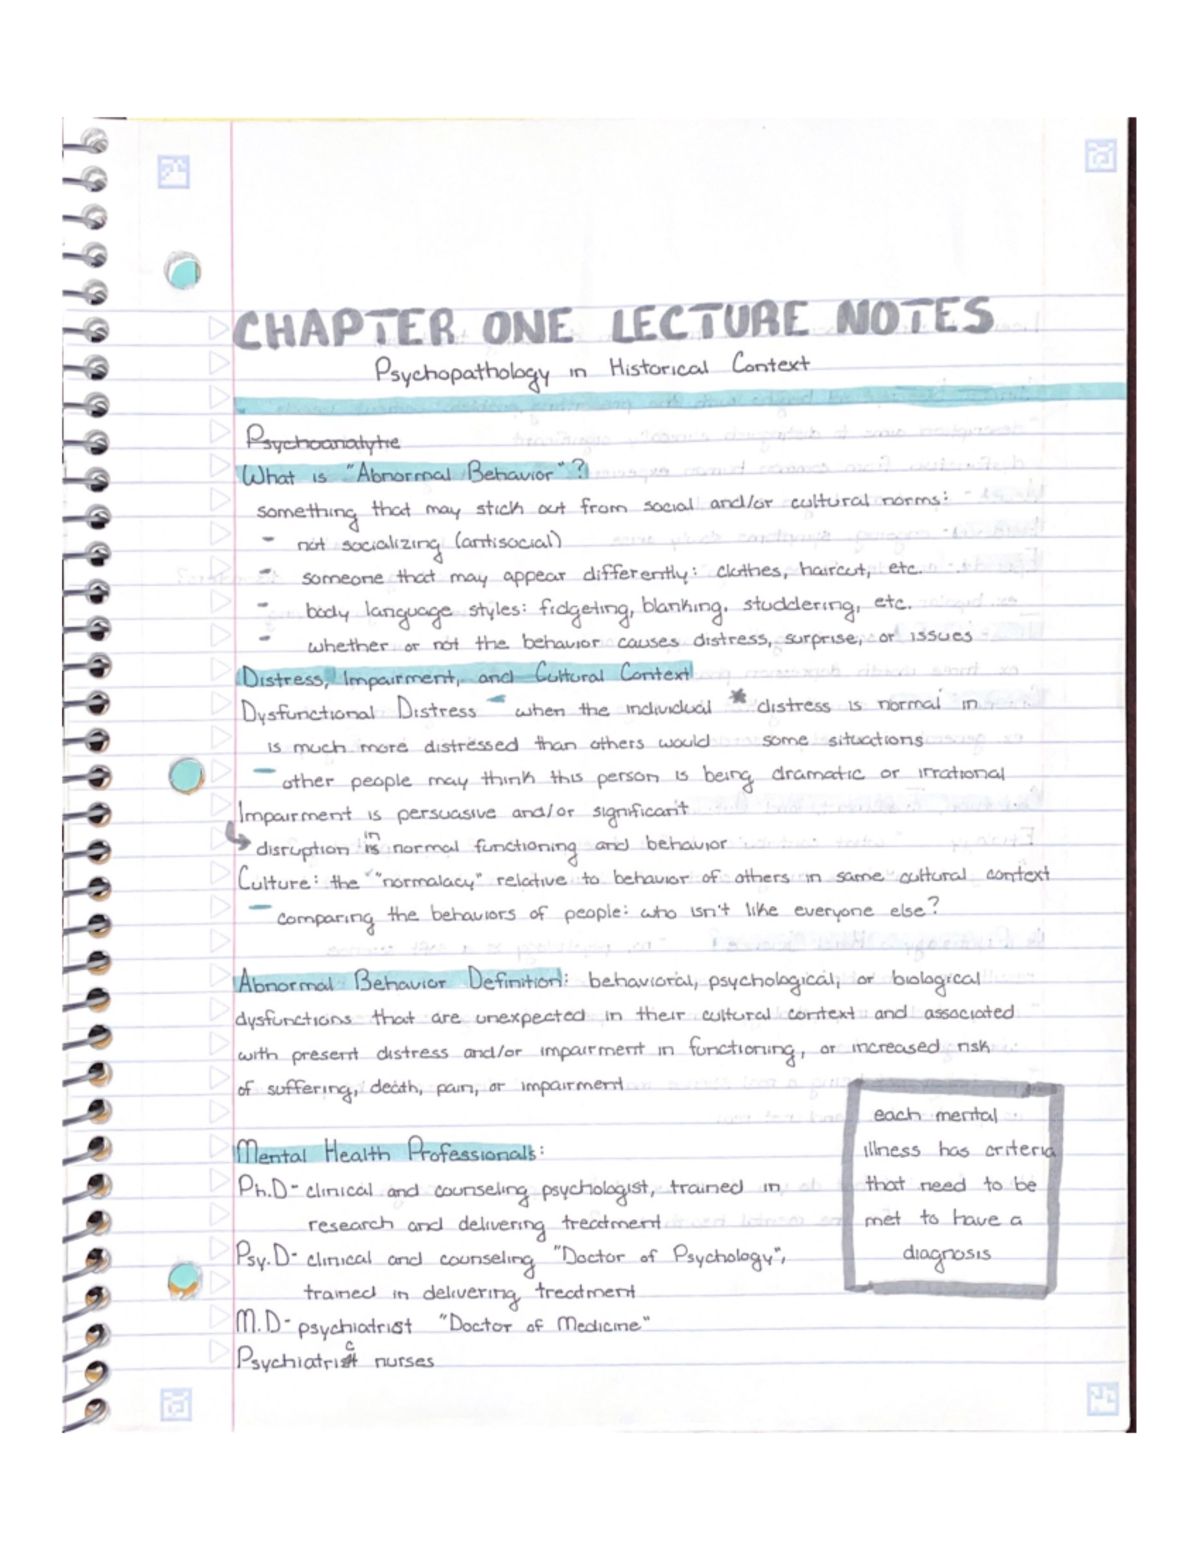 CHAPTER ONE LECTURE NOTES
Psychopathology in Historical Context
Psychoanalytic
What is "Abnormal Behavior"?
something that may stick out from social and/or cultural norms:
- not socializing (antisocial)
- someone that may appear differently: clothes, haircut, etc.
- body language styles: fidgeting, blanking, studdering, etc.
- whether or not the behavior causes distress, surprise, or issues
Distress, Impairment, and Cultural Context
Dysfunctional Distress - when the individual * distress is normal in
is much more distressed than others would some situations
- other people may think this person is being dramatic or irrational
Impairment is persuasive and/or significant
↳ disruption in normal functioning and behavior
Culture: the "normalacy" relative to behavior of others in same cultural context
- comparing the behaviors of people: who isn't like everyone else?
Abnormal Behavior Definition: behavioral, psychological, or biological
dysfunctions that are unexpected in their cultural context and associated
with present distress and/or impairment in functioning, or increased risk
of suffering, death, pain, or impairment
Mental Health Professionals:
Ph.D- clinical and counseling psychologist, trained in
research and delivering treatment
Psy.D- clinical and counseling "Doctor of Psychology",
trained in delivering treatment
M.D- psychiatrist "Doctor of Medicine"
Psychiatric nurses
each mental
illness has criteria
that need to be
met to have a
diagnosis